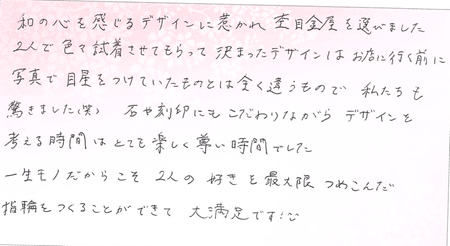 和の心を感じるデザインに惹かれ 杢目金屋を選びました
2人で色々試着させてもらって 決まったデザインは お店に行く前に
写真で目星をつけていたものとは全く違うもので 私たちも
驚きました(笑) 石や刻印にもこだわりながら デザインを
考える時間はとても楽しく尊い時間でした
一生モノだからこそ 2人の好きを最大限つめこんだ
指輪をつくることができて 大満足です!